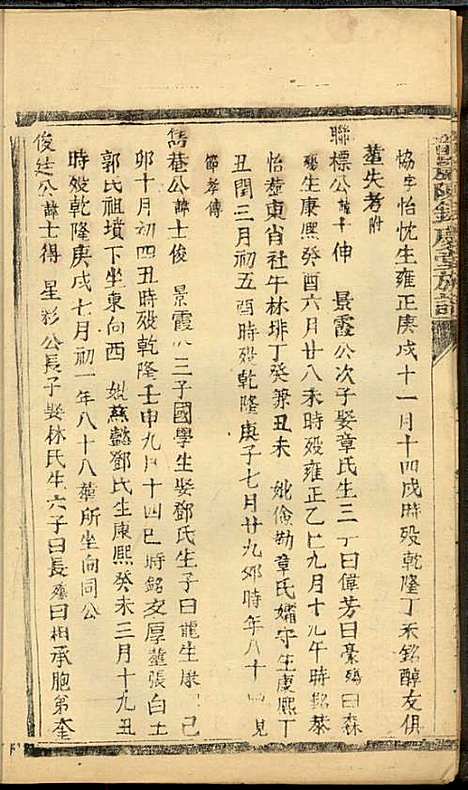 協字怡忱生雍正庚戌十一月十四戌時殁乾隆丁未銘醇友俱
塟失考附
聯標公諱士伸 景霞公次子娶章氏生三子曰偉芳曰豪殤曰森
殤生康熙癸酉六月廿八未時殁雍正乙巳九月十九午時銘恭
怡塟東肖社午林排丁癸兼丑未 妣儉勤章氏孀守生康熙丁
丑閏三月初五酉時殁乾隆庚子七月廿九卯時年八十 見
節孝傳
雋菴公諱士俊 景霞公三子國學生娶鄧氏生子曰龍生康 己
卯十月初四丑時殁乾隆壬申九月十四巳時銘友厚塟張白土
郭氏祖墳下坐東向西 妣蘇懿鄧氏生康熙癸未三月十九丑
時殁乾隆庚戌七月初一年八十八塟所坐向同公
俊廷公諱士得 星彩公長子娶林氏生六子曰長殤曰相承胞弟奎
慶堂族譜